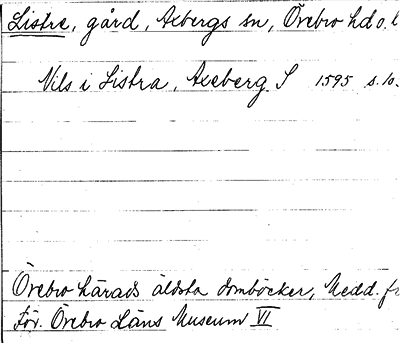 Listre, gård, Axbergs sn, Örebro hd o. l
Nils i Listra, Axeberg S 1595 s. 10.
Örebro härads äldsta domböcker, Medd. fr
För. Örebro Läns Museum VI